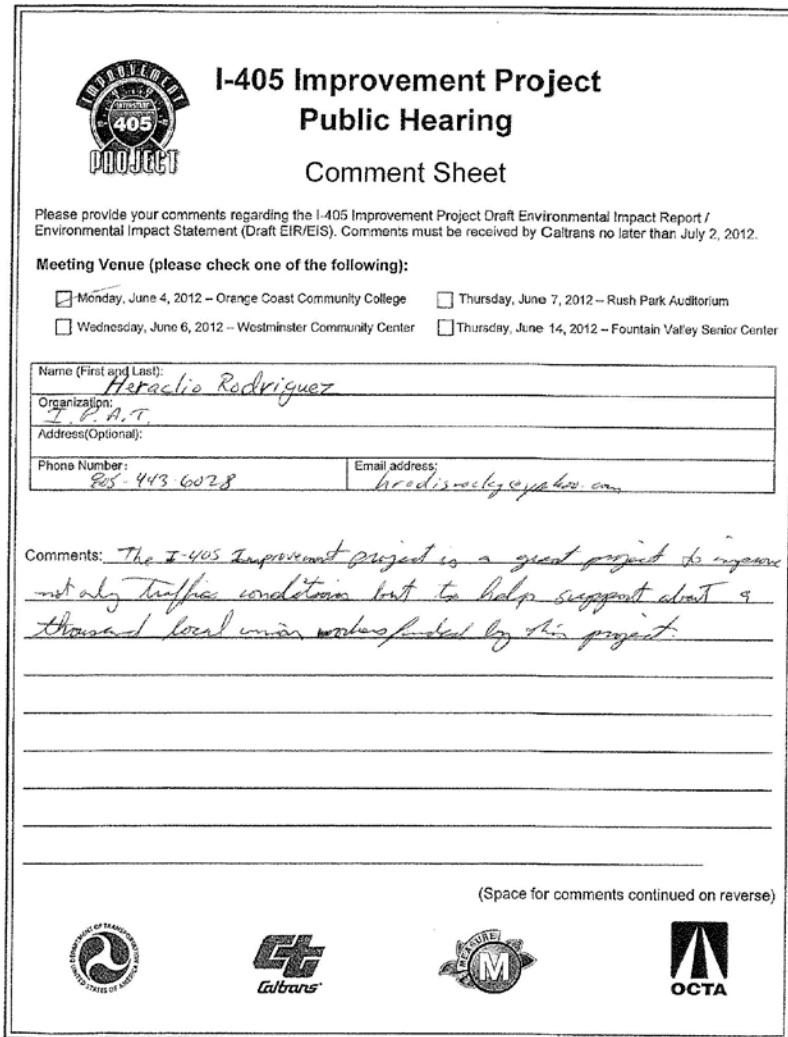 IMPROVEMENT
INTERSTATE
405
PROJECT
I-405 Improvement Project
Public Hearing
Comment Sheet
Please provide your comments regarding the I-405 Improvement Project Draft Environmental Impact Report /
Environmental Impact Statement (Draft EIR/EIS). Comments must be received by Caltrans no later than July 2, 2012.
Meeting Venue (please check one of the following):
Monday, June 4, 2012 – Orange Coast Community College
Thursday, June 7, 2012 – Rush Park Auditorium
Wednesday, June 6, 2012 – Westminster Community Center
Thursday, June 14, 2012 – Fountain Valley Senior Center
Name (First and Last):
Heraclio Rodriguez
Organization:
I.P.A.T.
Address(Optional):
Phone Number:
805-443-6028
Email address:
Comments: The I-405 Improvement project is a great project to improve
not only traffic conditions but to help support about a
thousand local union workers funded by this project.
(Space for comments continued on reverse)
DEPARTMENT OF TRANSPORTATION
UNITED STATES OF AMERICA
Caltrans
MEASURE
M
OCTA